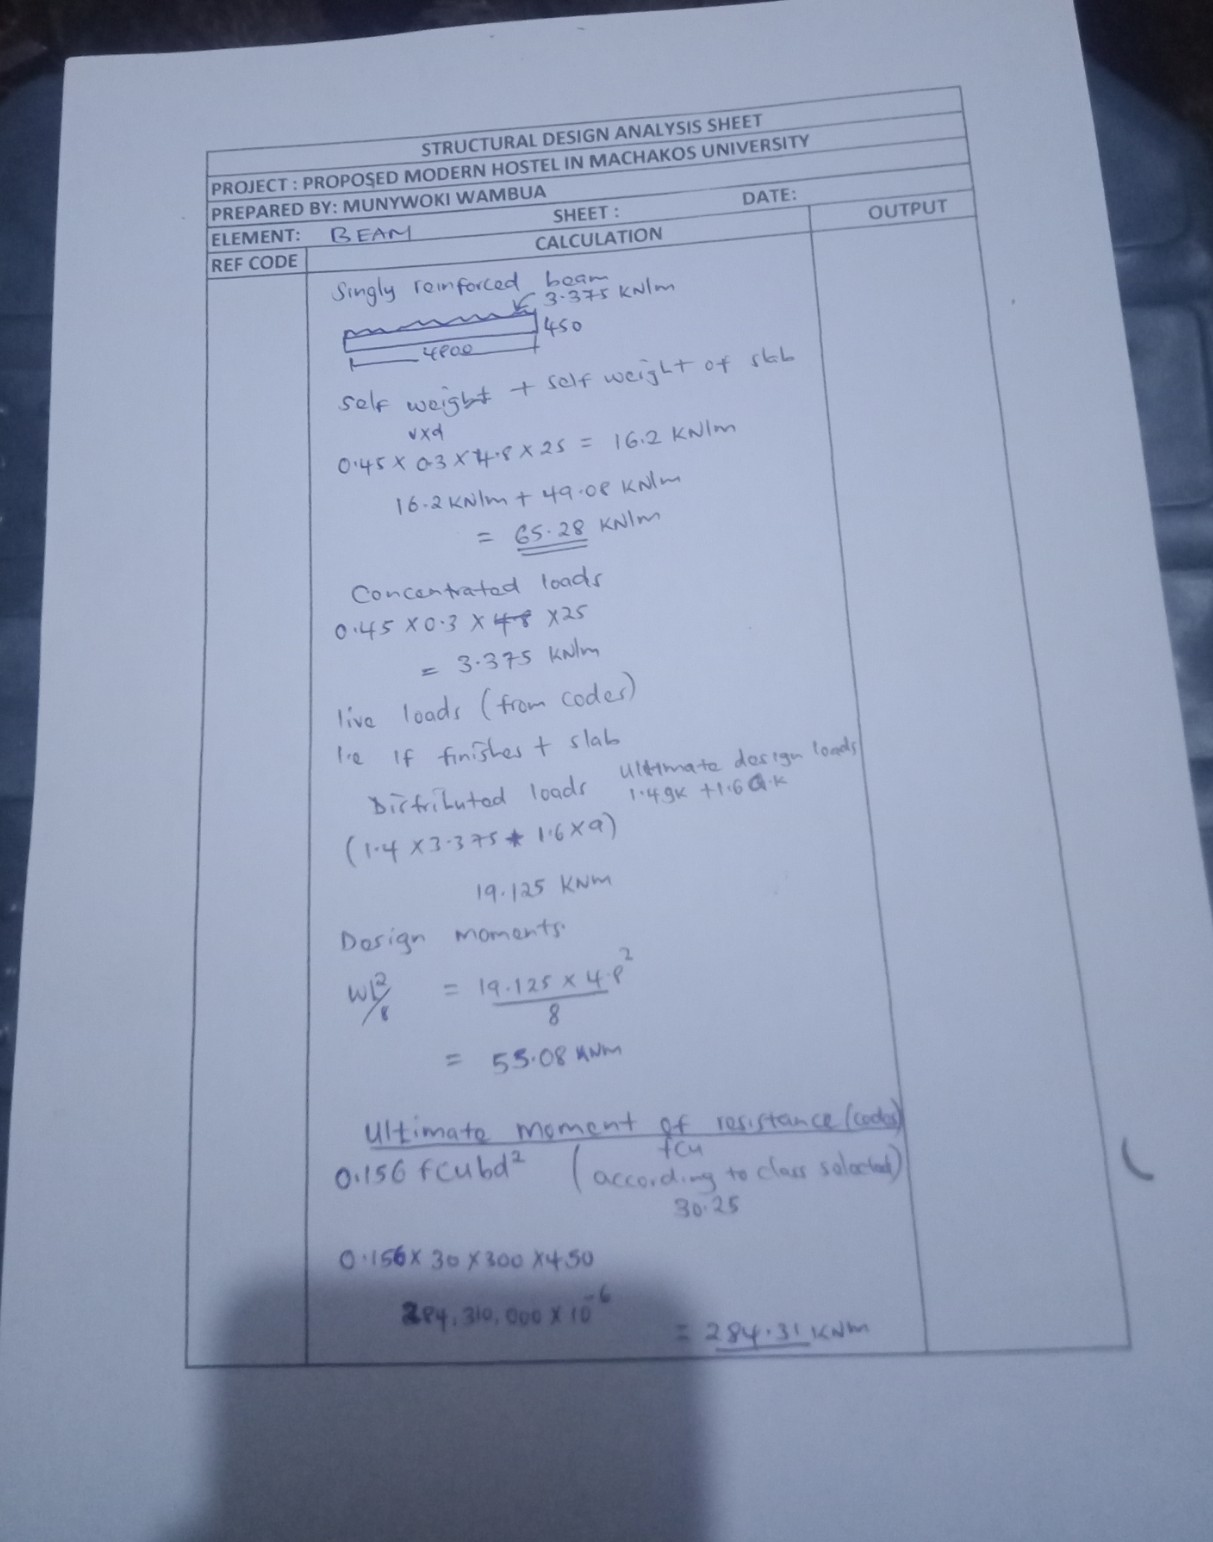 STRUCTURAL DESIGN ANALYSIS SHEET
PROJECT : PROPOSED MODERN HOSTEL IN MACHAKOS UNIVERSITY
PREPARED BY: MUNYWOKI WAMBUA
ELEMENT: BEAM SHEET : DATE:
REF CODE CALCULATION OUTPUT
Singly reinforced beam
3.375 KN/m
450
4800
Self weight + self weight of slab
vxd
0.45 x 0.3 x 4.8 x 25 = 16.2 KN/m
16.2 KN/m + 49.08 KN/m
= 65.28 KN/m
Concentrated loads
0.45 x 0.3 x 4.8 x 25
= 3.375 KN/m
live loads (from codes)
I.e If finishes + slab
Distributed loads Ultimate design loads
1.4gk + 1.6Q.K
(1.4 x 3.375 + 1.6 x 9)
19.125 KNm
Design moments
WL²/8 = 19.125 x 4.8²
8
= 55.08 KNm
Ultimate moment of resistance (codes)
0.156 fcubd² (fcu according to class selected)
30.25
0.156 x 30 x 300 x 450
284,310,000 x 10⁻⁶
= 284.31 KNm